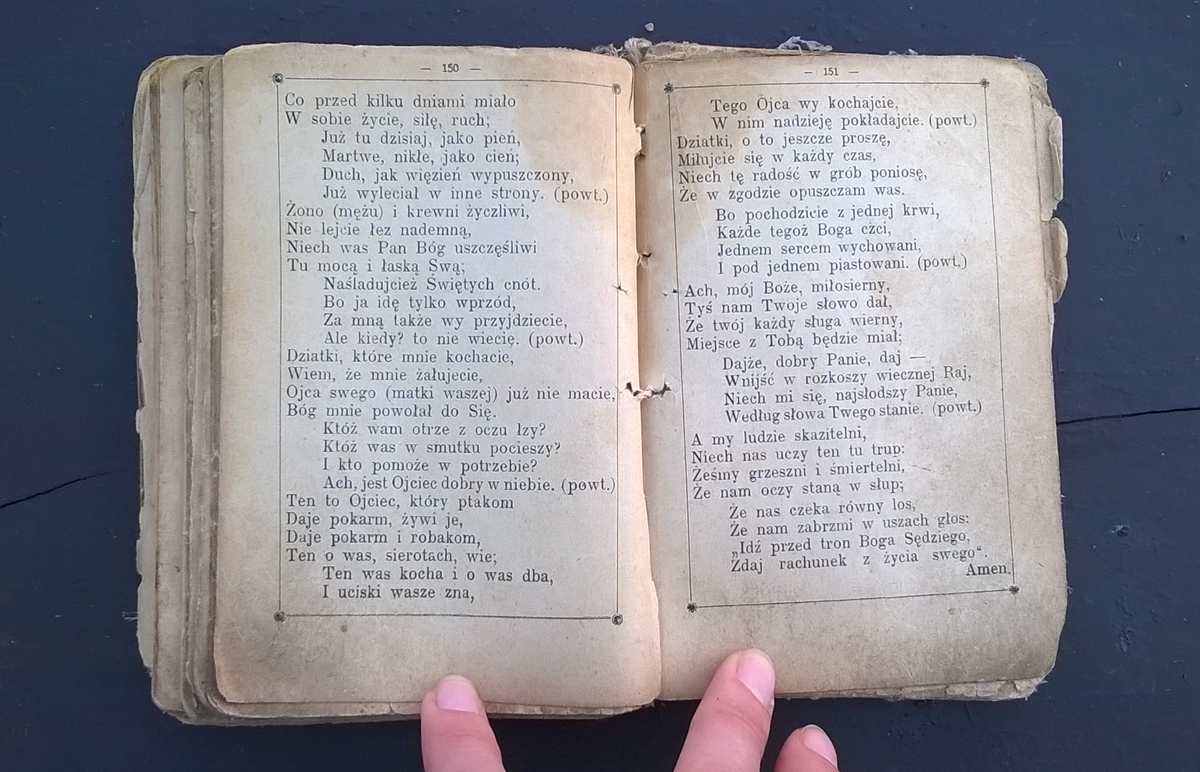 — 150 —
Co przed kilku dniami miało
W sobie życie, siłę, ruch;
Już tu dzisiaj, jako pień,
Martwe, nikłe, jako cień;
Duch, jak więzień wypuszczony,
Już wyleciał w inne strony. (powt.)
Żono (mężu) i krewni życzliwi,
Nie lejcie łez nademną,
Niech was Pan Bóg uszczęśliwi
Tu mocą i łaską Swą;
Naśladujcież Świętych cnót.
Bo ja idę tylko wprzód,
Za mną także wy przyjdziecie,
Ale kiedy? to nie wiecie. (powt.)
Dziatki, które mnie kochacie,
Wiem, że mnie żałujecie,
Ojca swego (matki waszej) już nie macie,
Bóg mnie powołał do Się.
Któż wam otrze z oczu łzy?
Któż was w smutku pocieszy?
I kto pomoże w potrzebie?
Ach, jest Ojciec dobry w niebie. (powt.)
Ten to Ojciec, który ptakom
Daje pokarm, żywi je,
Daje pokarm i robakom,
Ten o was, sierotach, wie;
Ten was kocha i o was dba,
I uciski wasze zna,
— 151 —
Tego Ojca wy kochajcie,
W nim nadzieję pokładajcie. (powt.)
Dziatki, o to jeszcze proszę,
Miłujcie się w każdy czas,
Niech tę radość w grób poniosę,
Że w zgodzie opuszczam was.
Bo pochodzicie z jednej krwi,
Każde tegoż Boga czci,
Jednem sercem wychowani,
I pod jednem piastowani. (powt.)
Ach, mój Boże, miłosierny,
Tyś nam Twoje słowo dał,
Że twój każdy sługa wierny,
Miejsce z Tobą będzie miał;
Dajże, dobry Panie, daj —
Wnijść w rozkoszy wiecznej Raj,
Niech mi się, najsłodszy Panie,
Według słowa Twego stanie. (powt.)
A my ludzie skazitelni,
Niech nas uczy ten tu trup:
Żeśmy grzeszni i śmiertelni,
Że nam oczy staną w słup;
Że nas czeka równy los,
Że nam zabrzmi w uszach głos:
„Idź przed tron Boga Sędziego,
Zdaj rachunek z życia swego“.
Amen.